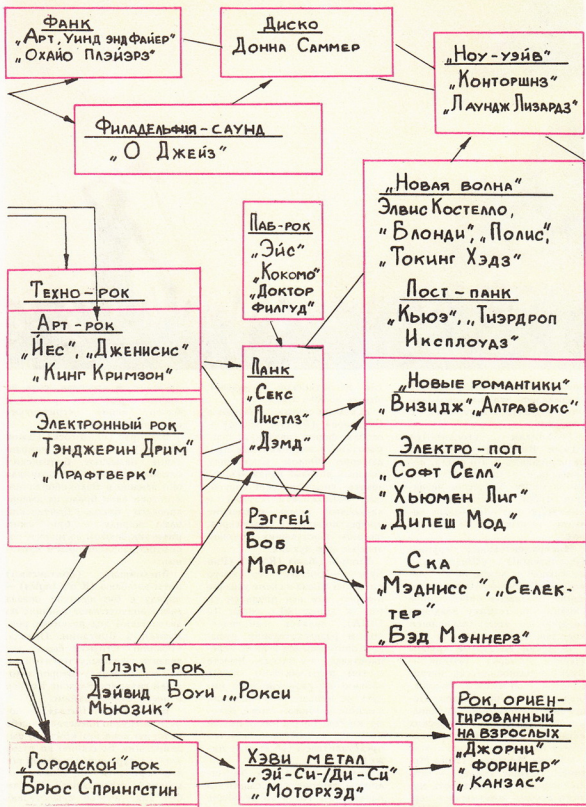 Фанк
„Арт, Уинд энд Файер"
„Охайо Плэйерз"
Диско
Донна Саммер
„Ноу-уэйв"
„Конторшнз"
„Лаундж Лизардз"
Филадельфия-саунд
„О Джейз"
„Новая волна"
Элвис Костелло,
„Блонди", „Полис",
„Токинг Хэдз"
Пост-панк
„Кьюэ", „Тиэрдроп
Иксплоудз"
Паб-рок
„Эйс"
„Кокомо"
„Доктор
Филгуд"
Техно-рок
Арт-рок
„Йес", „Дженисис"
„Кинг Кримзон"
Панк
„Секс
Пистлз"
„Дэмд"
„Новые романтики"
„Визидж" „Алтравокс"
Электронный рок
„Тэнджерин Дрим"
„Крафтверк"
Электро-поп
„Софт Селл"
„Хьюмен Лиг"
„Дипеш Мод"
Рэггей
Боб
Марли
Ска
„Мэднисс", „Селек-
тер"
„Бэд Мэннерз"
Глэм-рок
Дэйвид Боуи, „Рокси
Мьюзик"
Рок, ориен-
тированный
на взрослых
„Джорни"
„Форинер"
„Канзас"
„Городской" рок
Брюс Спрингстин
Хэви метал
„Эй-Си-/Ди-Си"
„Моторхэд"